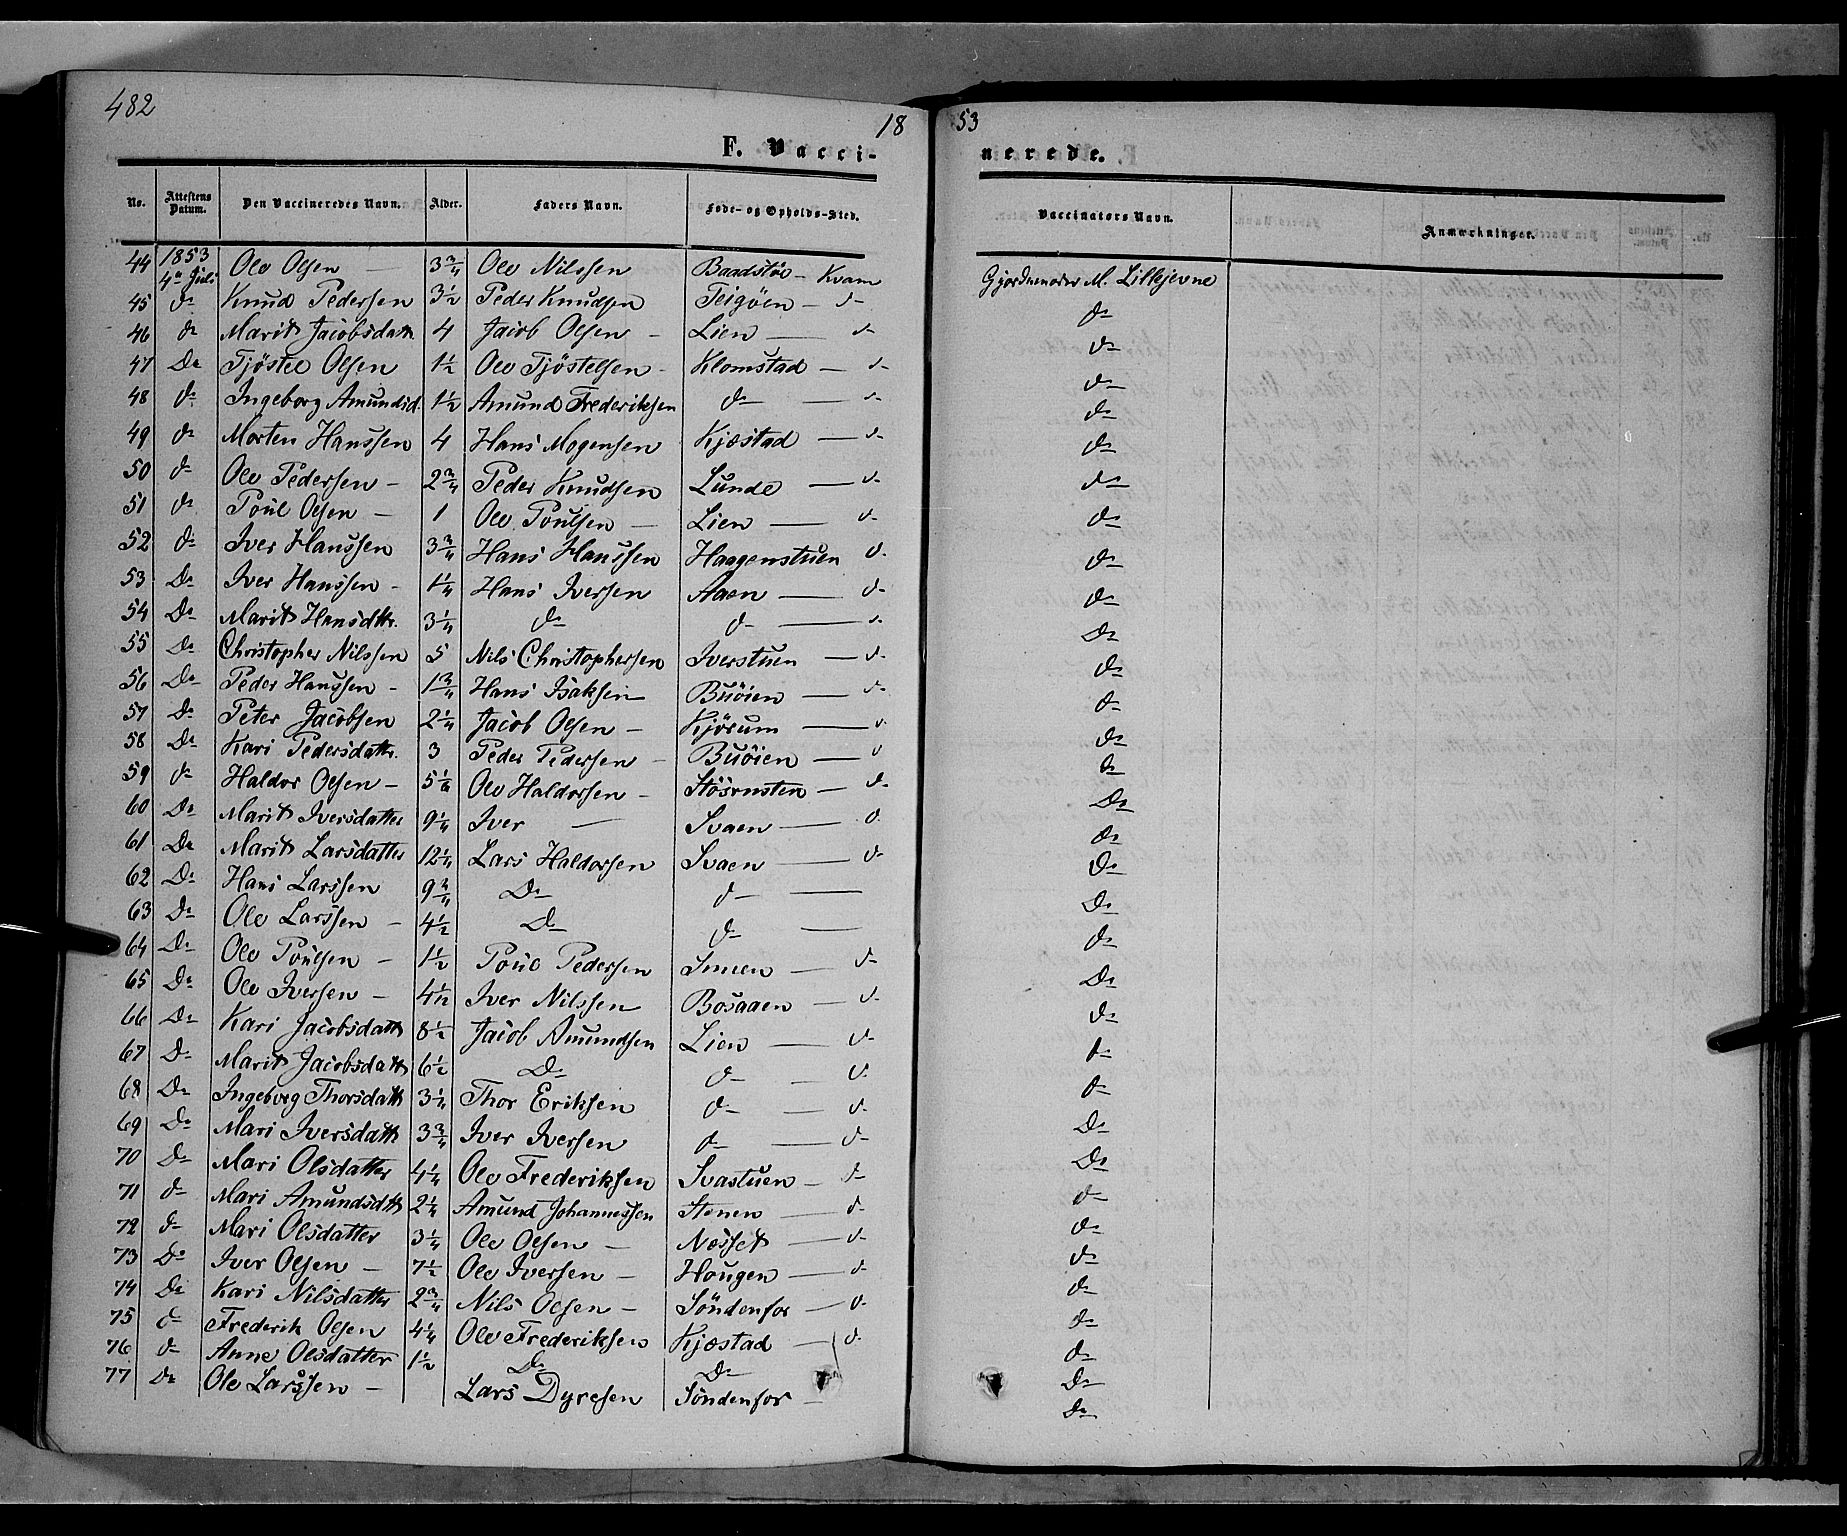 482
18 53
F. Vaccinerede.
No. Attestens Datum. Den Vaccineredes Navn. Alder. Faders Navn. Føde- og Opholds-Sted. Vaccinators Navn. Anmærkninger.
44 1853 4de Juli Ole Olsen — 3 3/4 Ole Nilssen Baadstøe - Kvam Gjordemoder M. Lillejevne
45 do Knud Pedersen 3 1/2 Peder Knudsen Teigøen - do do
46 do Marit Jacobsdatt. 4 Jacob Olsen - Lien — do do
47 Do Tjøstel Olsen 1 1/2 Ole Tjøstelsen - Klomstad — do do
48 do Ingeborg Amundsd. 1 1/2 Amund Frederiksen do — do do
49 do Morten Hanssen 4 Hans Mogensen Kjæstad — do do
50 do Ole Pedersen - 2 3/4 Peder Knudsen Lunde — do do
51 do Poul Olsen — 1 Ole Poulsen — Lien — do do
52 do Iver Hanssen 3 3/4 Hans Hanssen Haagenstuen do do
53 Do Iver Hanssen - 1 1/4 Hans Iversen Aaen — do do
54 Do Marit Hansdtr. 3 1/4 do do — do Do
55 Do Christopher Nilssen 5 Nils Christophersen Iverstuen — do do
56 Do Peder Hanssen - 1 3/4 Hans Isaksen Buøien — do do
57 Do Peter Jacobsen 2 1/4 Jacob Olsen - Kjørum — do do
58 Do Kari Pedersdattr. 3 Peder Pedersen - Buøien — do do
59 do Haldor Olsen - 5 1/2 Ole Haldorsen - — do Do
60 Do Marit Iversdatter 9 1/4 Iver — Svaen — do do
61 Do Marit Larsdatter 12 1/4 Lars Haldorsen Svaen — do Do
62 Do Hans Larssen 9 3/4 Do do — Do
63 Do Ole Larssen - 4 1/2 Do do — do
64 Do Ole Poulsen - 1 1/2 Poul Pedersen — do Do
65 Do Ole Iversen - 4 1/2 Iver Nilssen Bosaaen — do do
66 Do Kari Jacobsdatt 8 1/2 Jacob Amundsen Lien — do do
67 Do Marit Jacobsdatt 6 1/2 Do do — do do
68 Do Ingeborg Thorsdatt 3 1/4 Thor Eriksen do — do Do
69 Do Mari Iversdatt 3 3/4 Iver Iversen do — do Do
70 Do Mari Olsdatter 4 1/4 Ole Frederiksen Svastuen — do do
71 do Mari Amundsdtt 2 1/4 Amund Johannessen Stenen — do do
72 do Mari Olsdatter 3 1/4 Ole Olsen — Næsset — do do
73 Do Iver Olsen — 7 1/2 Ole Iversen - Hougen — do do
74 Do Kari Nilsdatter 2 3/4 Nils Olsen - Søndenfor — do do
75 do Frederik Olsen 4 1/4 Ole Frederiksen Kjæstad — do do
76 do Anne Olsdatter 1 1/2 Do Do Do
77 Do Ole Larssen - Lars Dyresen Søndenfor - Do